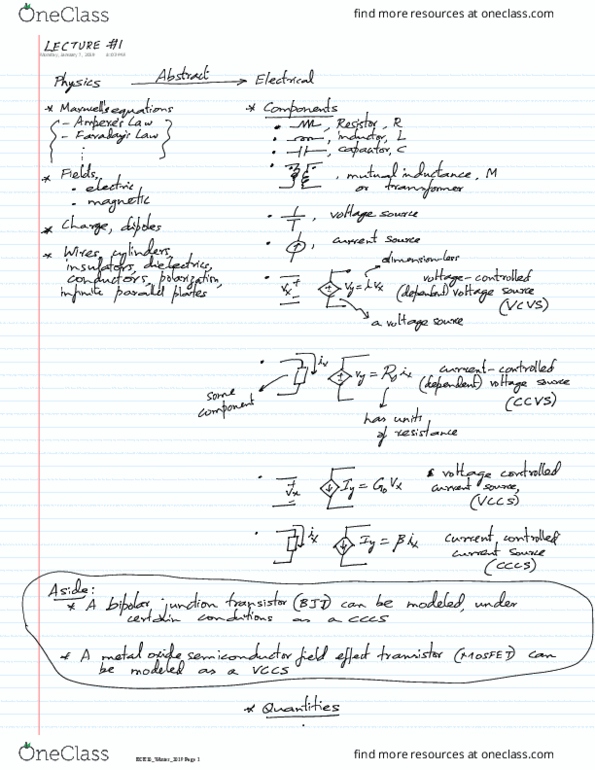 OneClass
find more resources at oneclass.com
LECTURE #1
Physics Abstract Electrical
* Maxwell's equations
- Ampere's Law
- Faraday's Law
* Fields,
• electric
• magnetic
* Charge, dipoles
* Wires, cylinders,
insulators, dielectrics,
conductors, polarization,
infinite parallel plates
* Components
• Resistor, R
• inductor, L
• capacitor, C
• , mutual inductance, M
or transformer
• , voltage source
• , current source
dimension-less
Vx + Vy = Vx voltage-controlled
(dependent) voltage source
(VCVS)
a voltage source
• Vy = ix current-controlled
(dependent) voltage source
(CCVS)
some
component
has units
of resistance
• Vx Iy = Vx voltage controlled
current source,
(VCCS)
• ix Iy = β ix current, controlled
current source
(CCCS)
Aside:
* A bipolar junction transistor (BJT) can be modeled, under
certain conditions as a CCCS
* A metal oxide semiconductor field effect transistor (MOSFET) can
be modeled as a VCCS
* Quantities
OneClass
Page 1
find more resources at oneclass.com